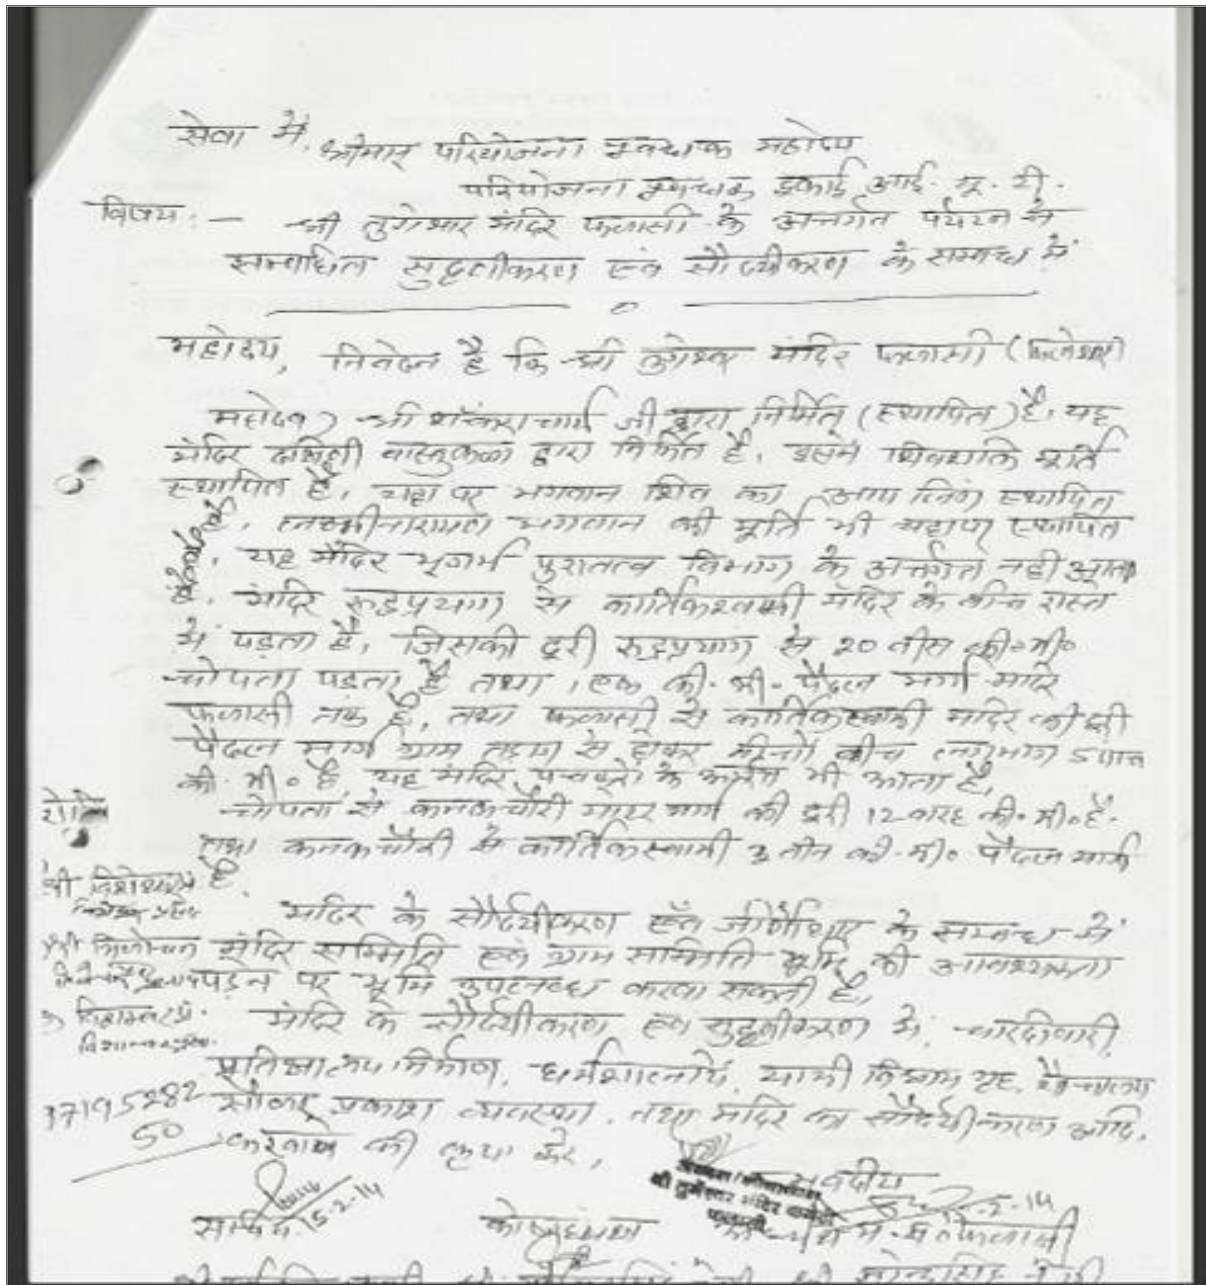 सेवा में,
श्रीमान् परियोजना प्रबन्धक महोदय
परियोजना प्रबन्धक इकाई आई. यू. टी.
विषय :- श्री तुगेश्वर मंदिर फलासी के अन्तर्गत पर्यटन से
सम्बन्धित सुदृढीकरण एवं सौदर्यीकरण के सम्बन्ध में
महोदय, निवेदन है कि श्री तुगेश्वर मंदिर फलासी (
महादेव) श्री शंकराचार्य जी द्वारा निर्मित (स्थापित) है, यह
मंदिर दक्षिणी वास्तुकला द्वारा निर्मित है, इसमें शिवशक्ति मूर्ति
स्थापित है, यहां पर भगवान शिव का लिंग स्थापित
है, लक्ष्मीनारायण भगवान की मूर्ति भी यहाँपर स्थापित
यह मंदिर भूगर्भ पुरातत्व विभाग के अर्न्तगत नही आता
है, मंदिर रुद्रप्रयाग से कार्तिकस्वामी मंदिर के बीच रास्ते
में पड़ता है, जिसकी दूरी रुद्रप्रयाग से 20 बीस की०मी०
चोपता पड़ता है तथा 1 एक की. मी. पैदल मार्ग मंदिर
फलासी तक है, तथा फलासी से कार्तिकस्वामी मंदिर की दूरी
पैदल मार्ग ग्राम से होकर बीच लगभग 5 पांच
की. मी० है, यह मंदिर के भी आता है,
चोपता से कनकचौरी मोटर मार्ग की दूरी 12 बारह की०मी० है.
तथा कनकचौरी से कार्तिकस्वामी 3 तीन की.मी० पैदल मार्ग
है.
मंदिर के सौर्दयीकरण एवं के सम्बन्ध में
मंदिर सम्मिति एवं ग्राम सम्मिति भूमि की आवश्यकता
पड़ने पर भूमि उपलब्ध करवा सकती है,
मंदिर के सौर्दयीकरण एवं सुदृढीकरण में, चारदीवारी,
निर्माण, धर्मशालायें, यात्री विश्राम गृह, शौचालय
प्रकाश व्यवस्था, तथा मंदिर का सौर्दयीकरण आदि,
37195282
50
करवाने की कृपा करें,
भवदीय
अध्यक्ष/कोषाध्यक्ष
श्री तुंगेश्वर मंदिर कमेटी
फलासी
15-2-14
15-2-14
सचिव
कोषाध्यक्ष